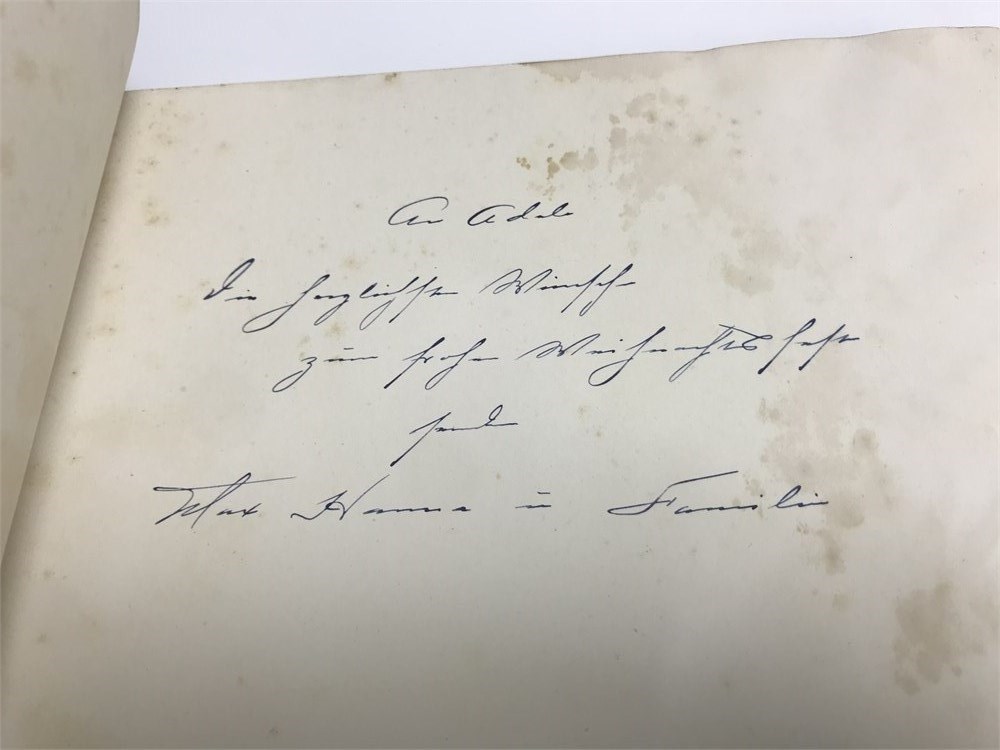 An Adele
Die herzlichsten Wünsche
zum frohen Weihnachtsfeste
sendet
Max Hanna u Familie